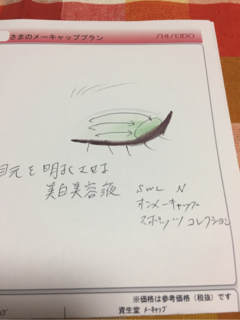 さまのメーキャッププラン
SHISEIDO
目元を明るくさせる
美白美容液
SWL N
オンメーキャップ
スポッツ コレクション
※価格は参考価格（税抜）です
資生堂 メーキャップ